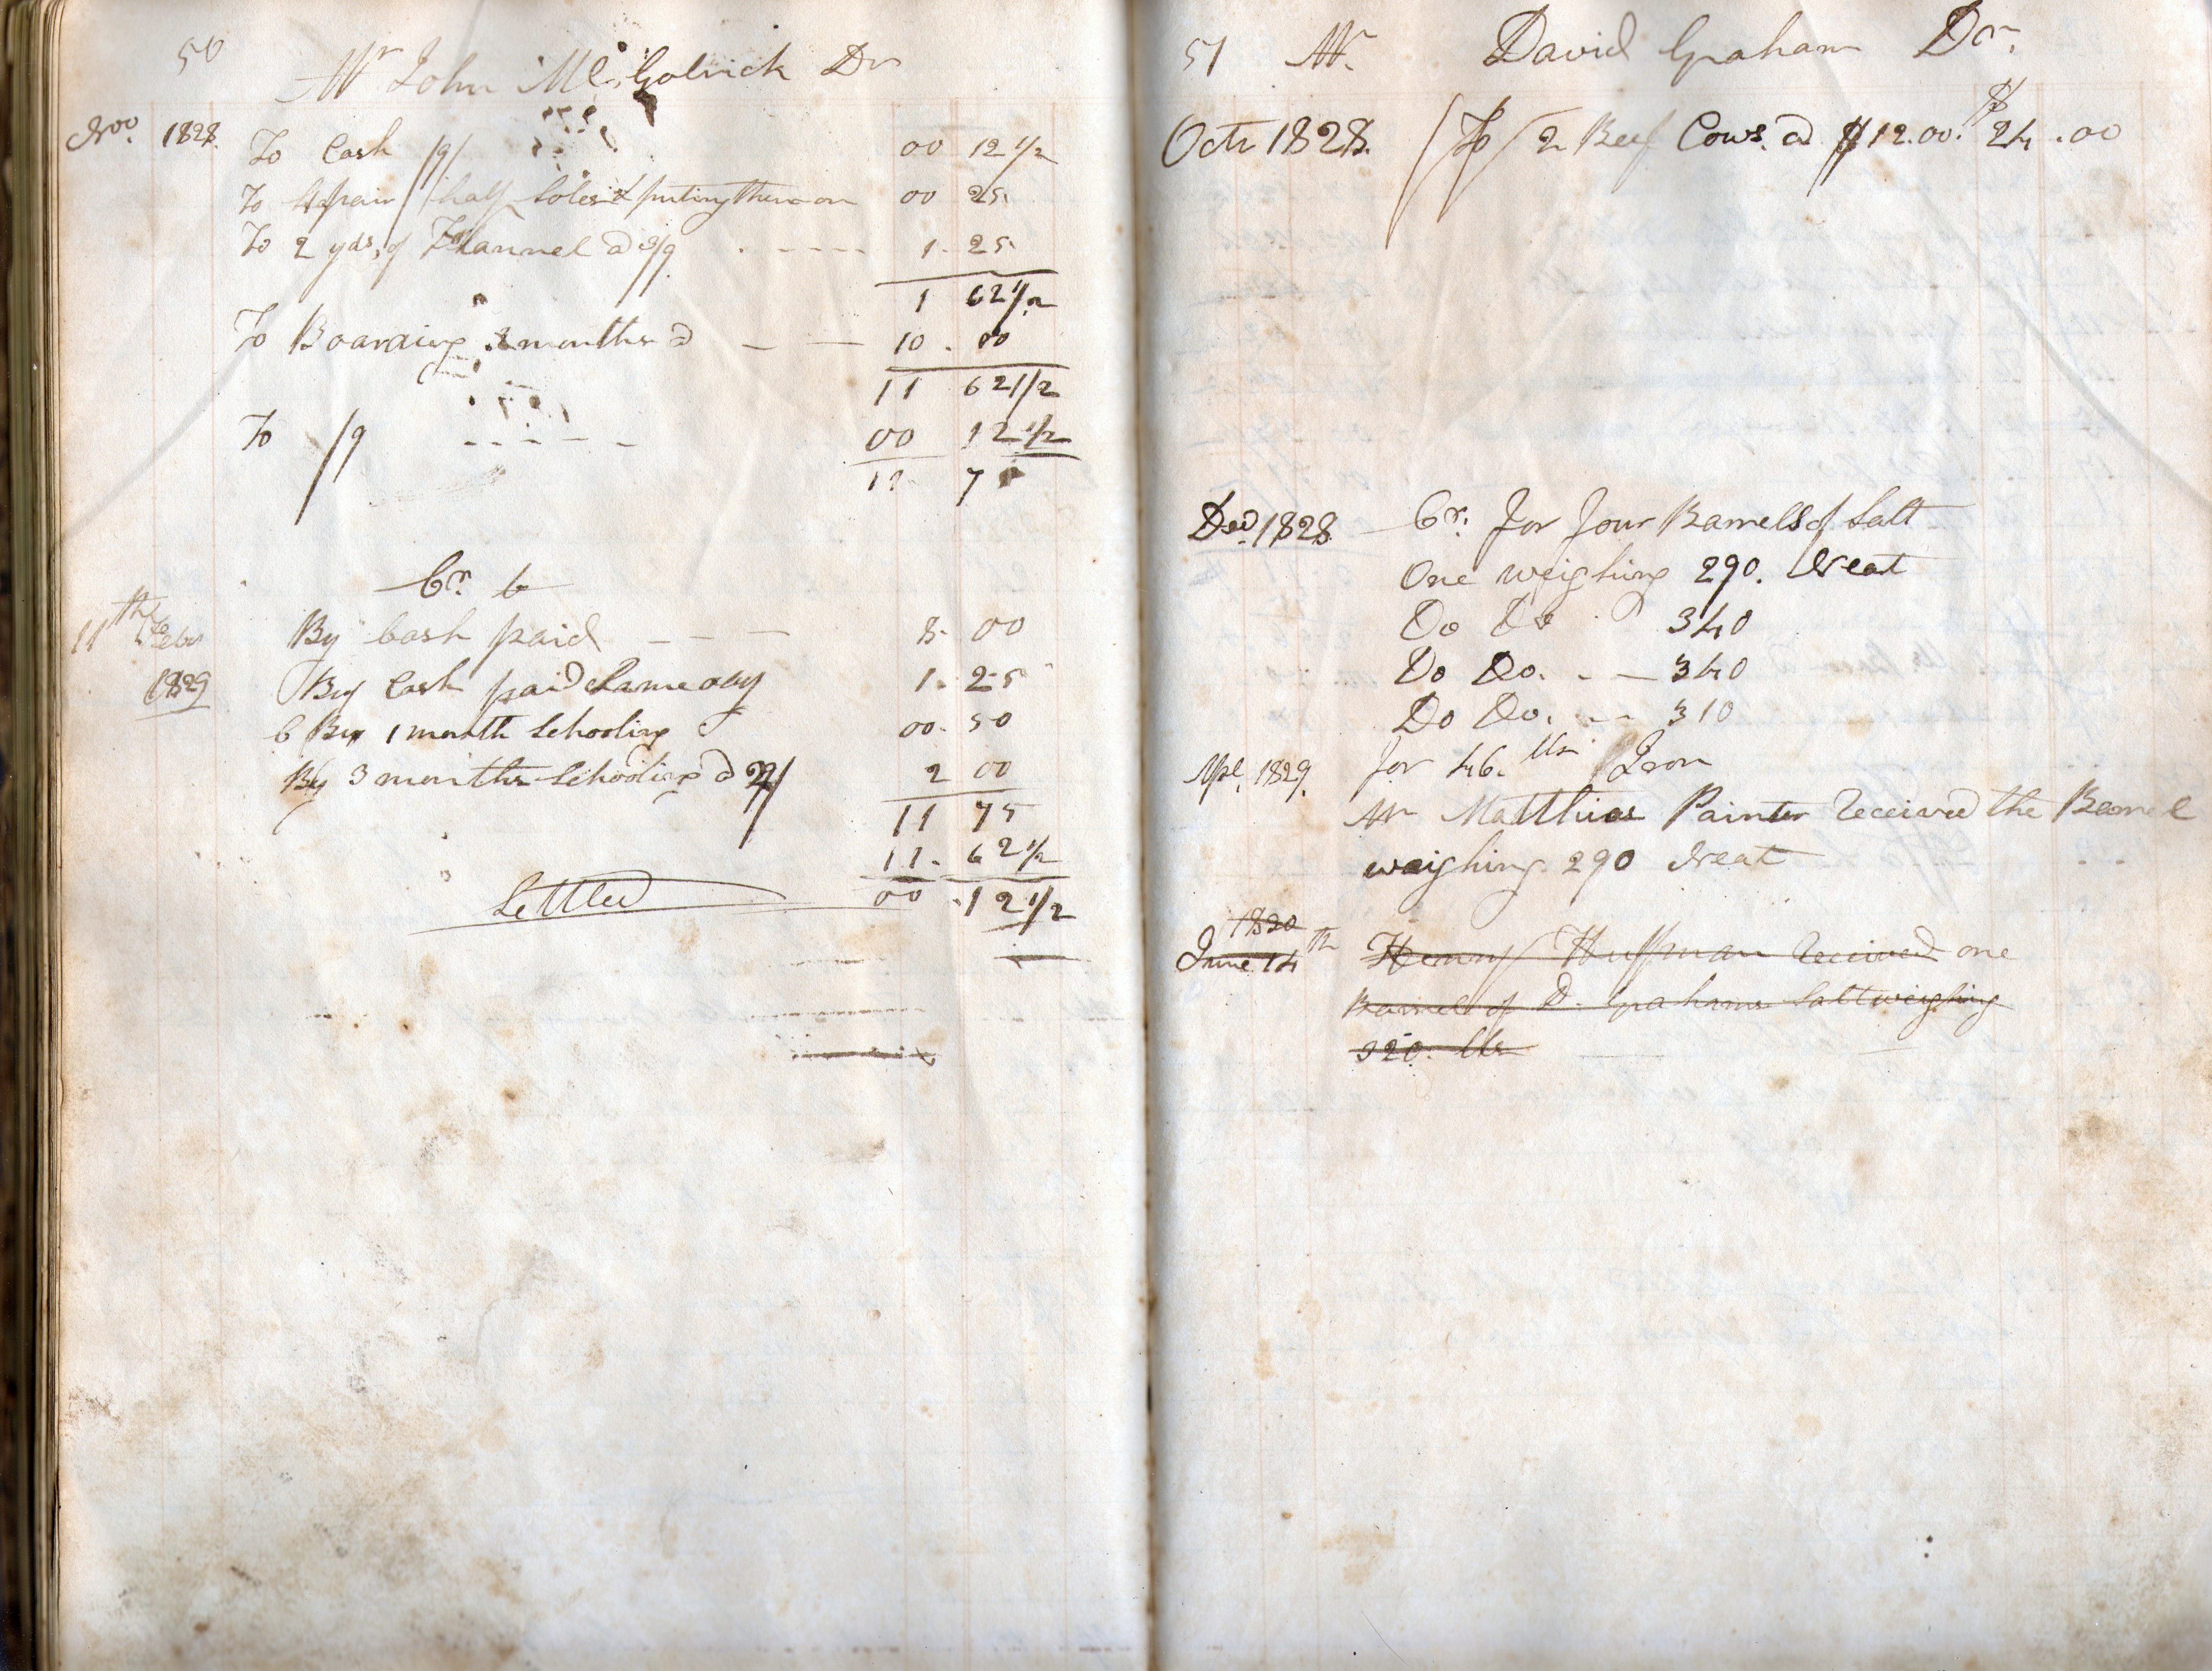 50
Mr John Mc. Golrick Dr
Nov. 1828. To Cash /9/ 00 12 1/2
To A pair half Soles & puting them on 00 25
To 2 yds. of Flannel @ 3/9 1. 25
1 62 1/2
To Boarding months @ 10. 00
11 62 1/2
To /9 00 12 1/2
11 7
Cr.
11th Feby By Cash paid 8. 00
1829 By Cash paid Same day 1. 25
By 1 month Schooling 00. 50
By 3 months Schooling @ 2 00
11 75
11. 62 1/2
Settled 00 .12 1/2
51 Mr. David Graham Dr.
Octr 1828. To 2 Beef Cows. @ $12.00. $24.00
Decr. 1828. Cr. for four Barrels of Salt
One weighing 290. Neat
Do Do 340
Do Do. 340
Do Do. 310
Apl. 1829. for 46. lbs Iron
Mr Matthias Painter Received the Barrel
weighing 290 Neat
1830
June 14th Henry Huffman Received one
Barrel of D. Grahams Salt weighing
320. lbs